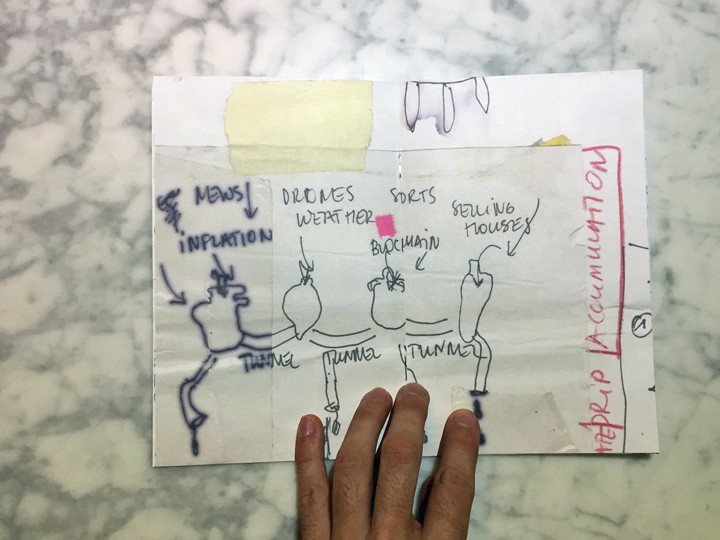 NEWS
INFLATION
DRONES
WEATHER
SORTS
BLOCHAIN
SELLING
HOUSES
TUNNEL
TUNNEL
TUNNEL
DRIP ACCUMULATION